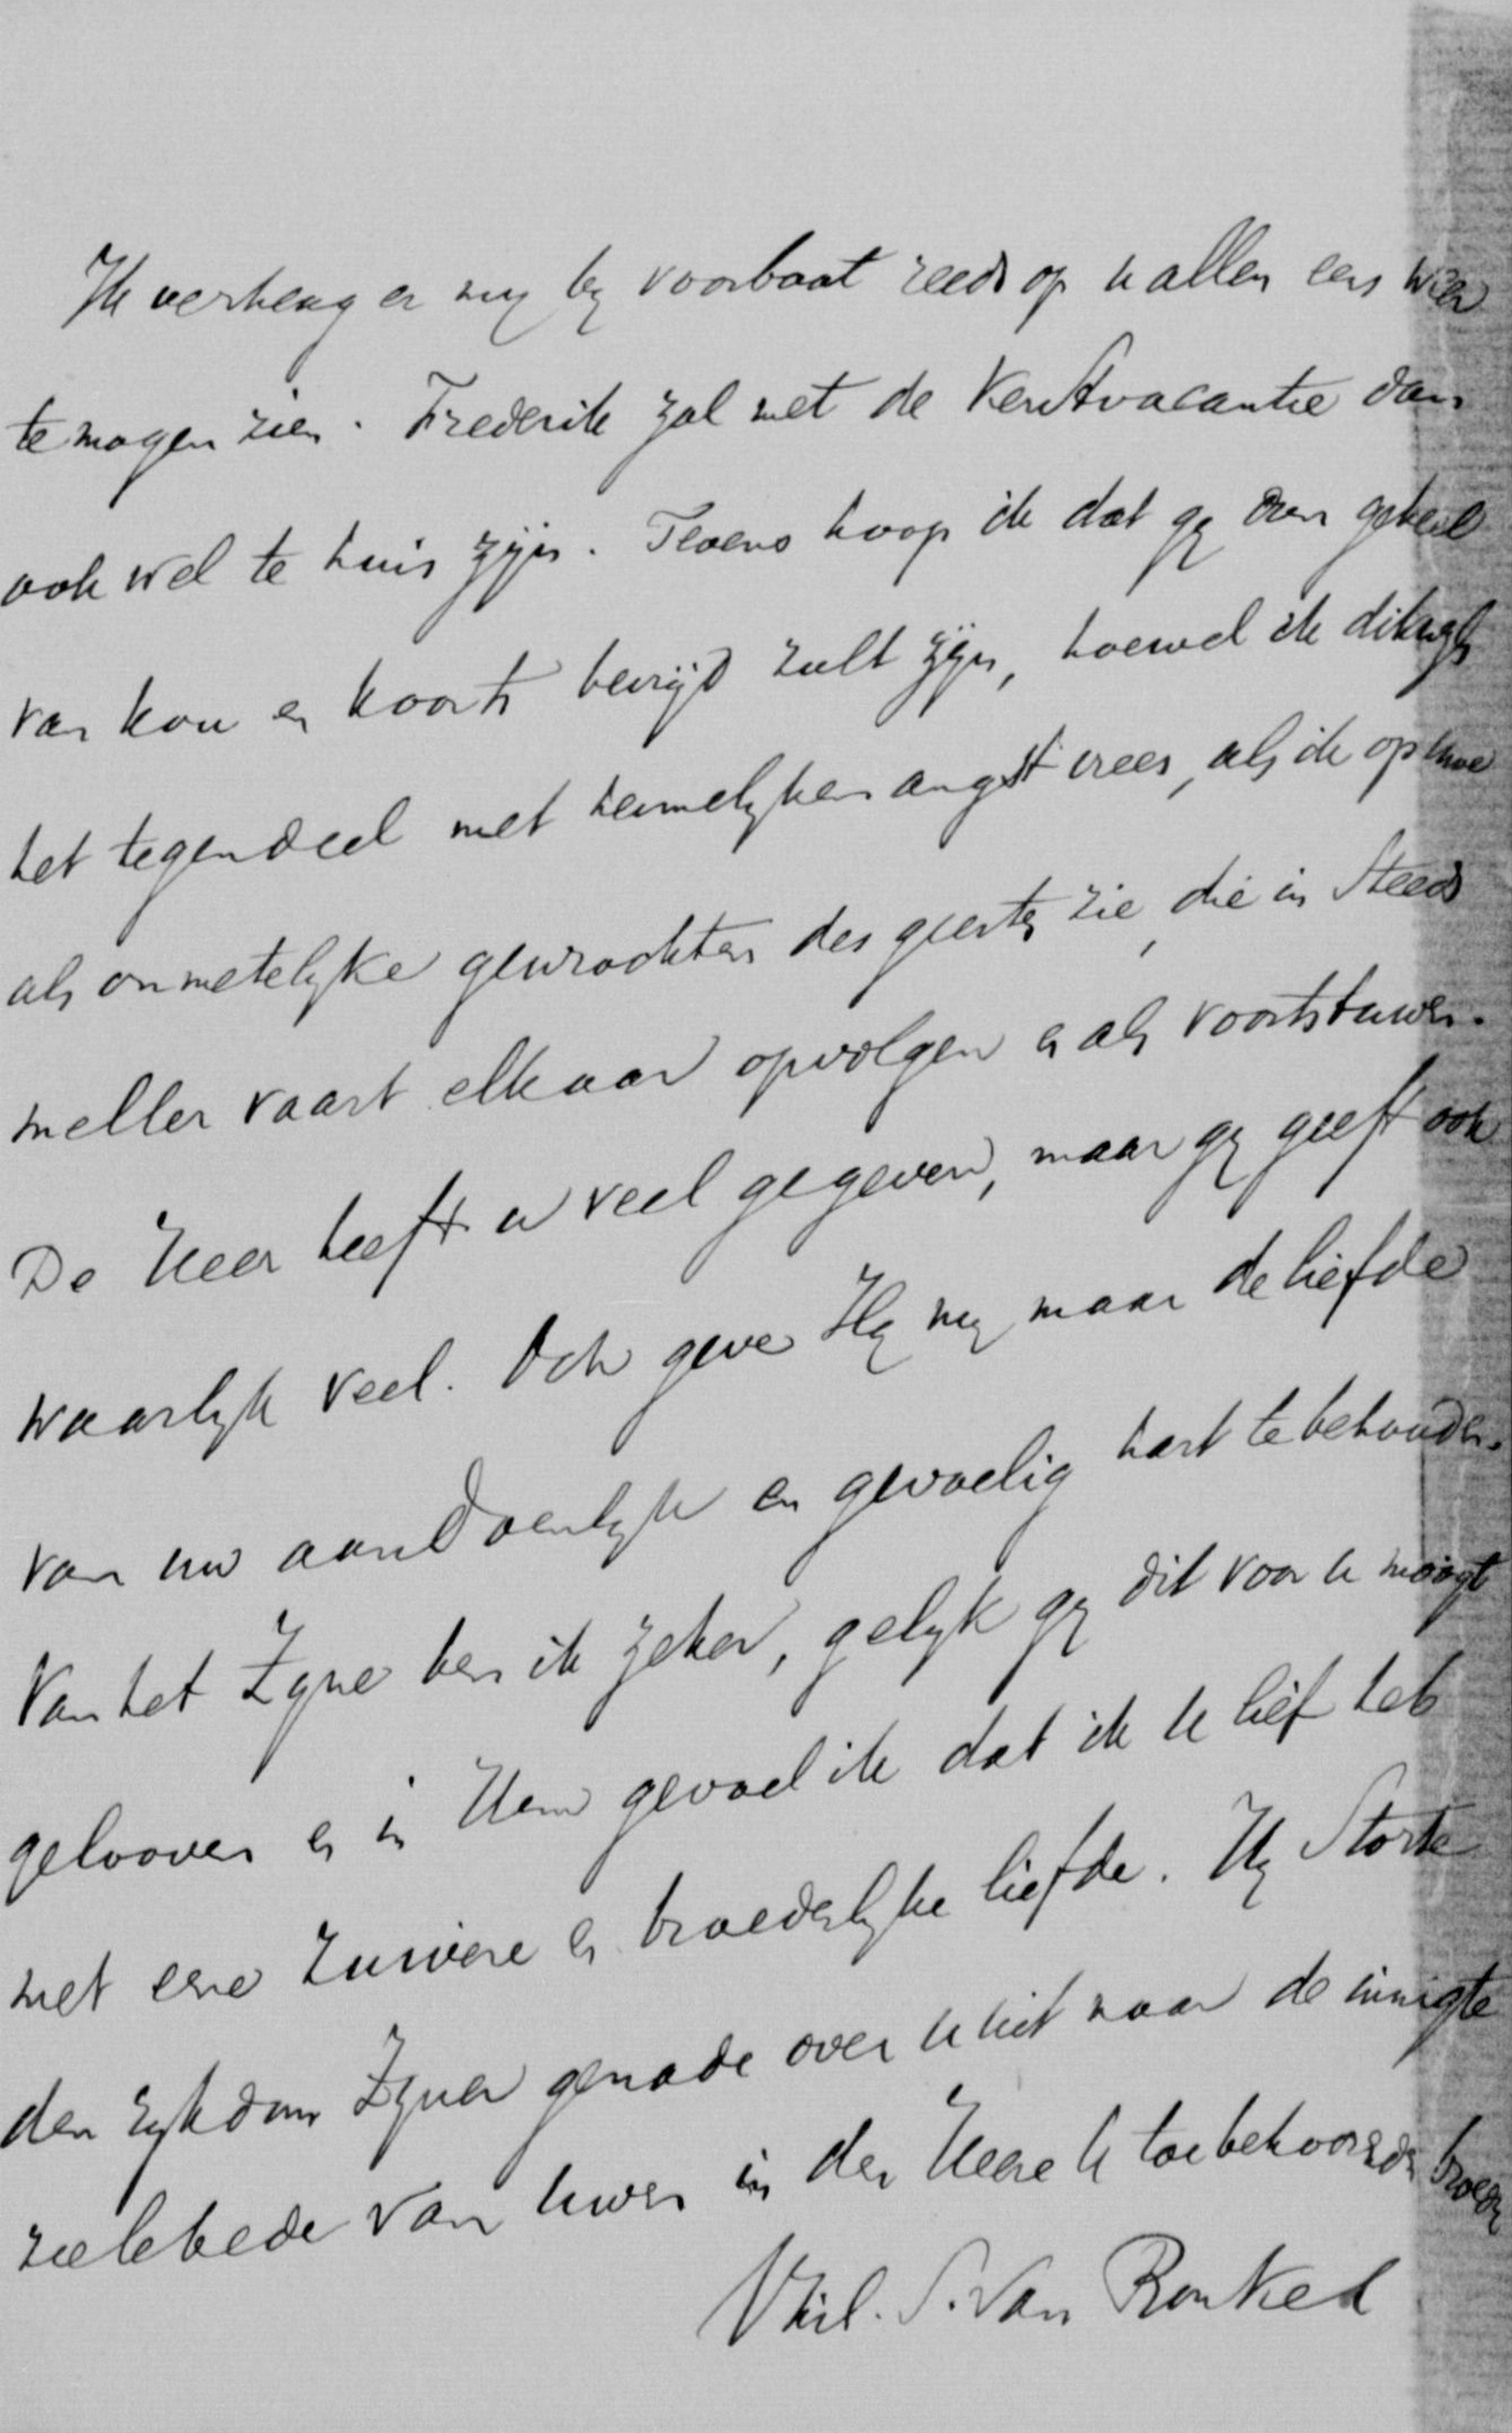 Ik verheug er my by voorbaat reeds op u allen eens weer
te mogen zien. Frederik zal met de Kerstvacantie dan
ook wel te huis zijn. Tevens hoop ik dat gy dan geheel
van kou en koorts bevrijd zult zijn, hoewel ik dikwyls
het tegendeel met heimelyken angst vrees, als ik op uwe
als onmetelyke gewrochten des geestes zie, die in steeds
sneller vaart elkaar opvolgen en als voortstuwen.
De Heer heeft u veel gegeven, maar gy geeft ook
waarlyk veel. Och geve Hy my maar de liefde
van uw aandoenlyk en gevoelig hart te behouden.
Van het Zyne ben ik zeker, gelyk gy dit voor u moogt
gelooven en in Hem gevoel ik dat ik U lief heb
met eene zuivere en broederlyke liefde. Hy storte
den rykdom Zyner genade over u uit naar de innigste
zielebede van uwen in den Heere U toebehoorenden broeder
Phil. S. van Ronkel